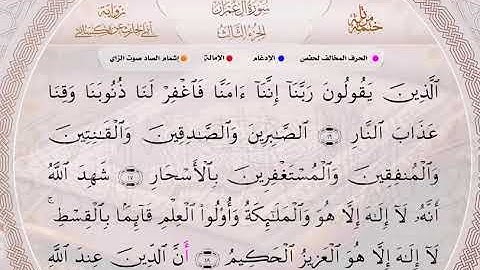 سُورَةُ آلِ عِمْرَان
الجُزْءُ الثَّالِثُ
بِرِوَايَةِ
أبي الحارث عن الكسائي
الحرف المخالف لحفص الإدغام الإمالة إشمام الصاد صوت الزاي
ٱلَّذِينَ يَقُولُونَ رَبَّنَآ إِنَّنَآ ءَامَنَّا فَٱغْفِرْ لَنَا ذُنُوبَنَا وَقِنَا
عَذَابَ ٱلنَّارِ ١٦ ٱلصَّٰبِرِينَ وَٱلصَّٰدِقِينَ وَٱلْقَٰنِتِينَ
وَٱلْمُنفِقِينَ وَٱلْمُسْتَغْفِرِينَ بِٱلْأَسْحَارِ ١٧ شَهِدَ ٱللَّهُ
أَنَّهُۥ لَآ إِلَٰهَ إِلَّا هُوَ وَٱلْمَلَٰٓئِكَةُ وَأُو۟لُوا۟ ٱلْعِلْمِ قَآئِمًۢا بِٱلْقِسْطِ ۚ
لَآ إِلَٰهَ إِلَّا هُوَ ٱلْعَزِيزُ ٱلْحَكِيمُ ١٨ أَنَّ ٱلدِّينَ عِندَ ٱللَّهِ